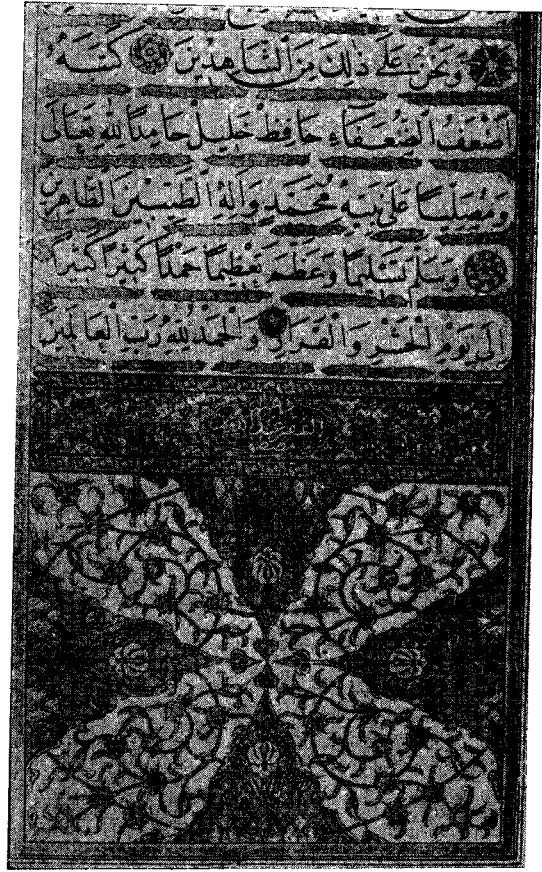 وَنَحْنُ عَلَى ذٰلِكَ مِنَ الشَّاهِدِينَ كَتَبَهُ
اَضْعَفُ الضُّعَفَاءِ حَافِظْ خَلِيلْ حَامِدًا لِلّٰهِ تَعَالَى
وَمُصَلِّيًا عَلَى نَبِيِّهِ مُحَمَّدٍ وَآلِهِ الطَّيِّبِينَ الطَّاهِرِينَ
وَسَلَّمَ تَسْلِيمًا وَعَظَّمَ تَعْظِيمًا حَمْدًا كَثِيرًا كَثِيرًا
اِلَى يَوْمِ الْحَشْرِ وَالْقَرَارِ وَالْحَمْدُ لِلّٰهِ رَبِّ الْعَالَمِينَ